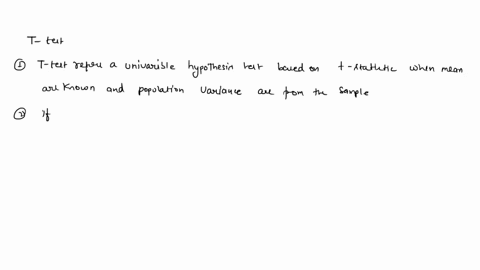 T- test
① T-test refers a univarible hypothesin test based on t-statistic when mean
are known and population variance are from the sample
② if